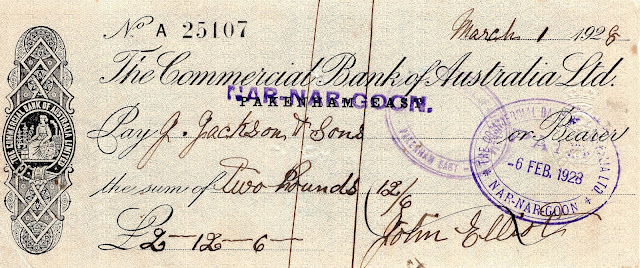 No A 25107 March 1 1928
The Commercial Bank of Australia Ltd.
PAKENHAM EAST
NAR-NAR-GOON.
Pay J. Jackson & Sons or Bearer
the sum of Two Pounds 12/6
£2-12-6- John Elliot
THE COMMERCIAL BANK OF AUSTRALIA LIMITED
PAKENHAM EAST
THE COMMERCIAL BANK OF AUSTRALIA LTD
PAID
-6 FEB. 1928
NAR-NAR-GOON